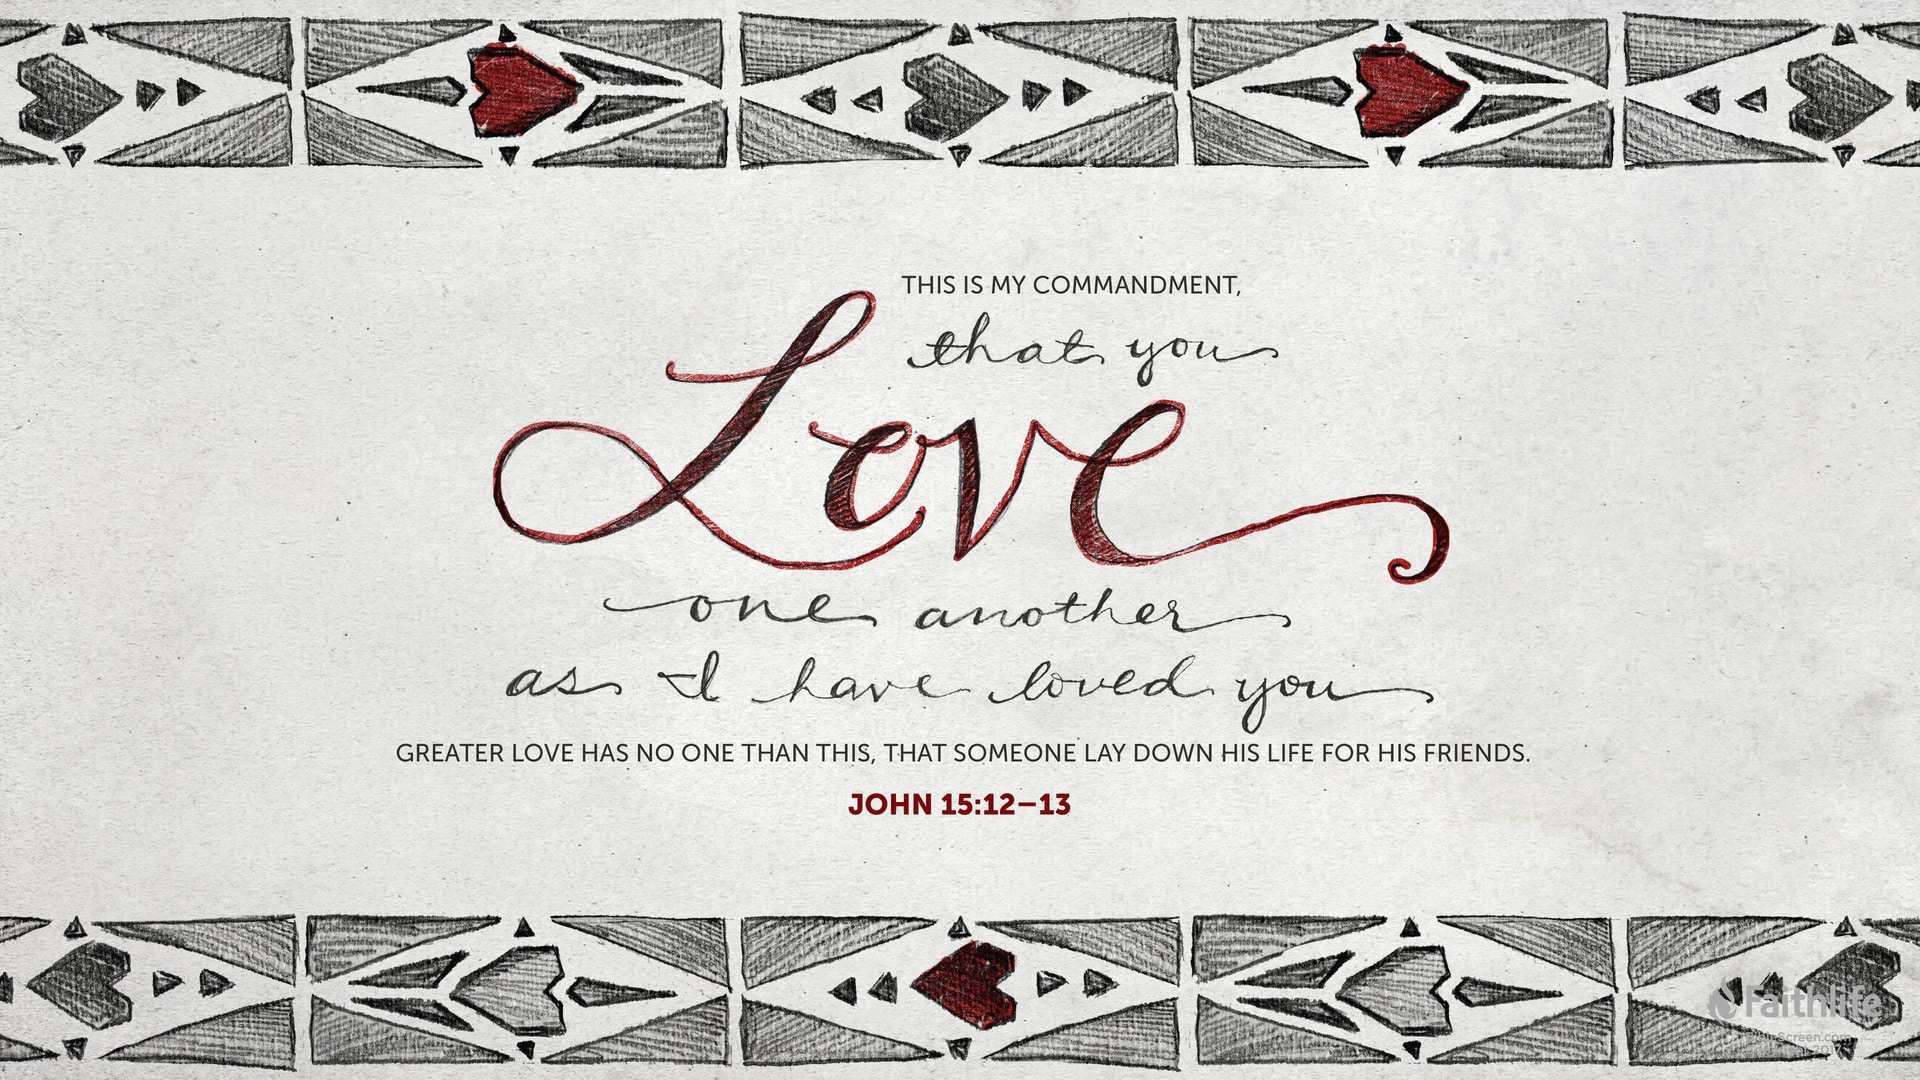 THIS IS MY COMMANDMENT,
that you
Love
one another
as I have loved you
GREATER LOVE HAS NO ONE THAN THIS, THAT SOMEONE LAY DOWN HIS LIFE FOR HIS FRIENDS.
JOHN 15:12–13
Faithlife